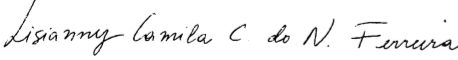 Lisianny Camila C. do N. Ferreira